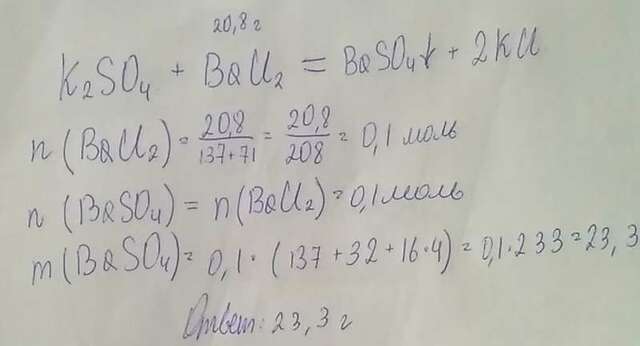 20,8 г
K₂SO₄ + BaCl₂ = BaSO₄↓ + 2KCl
n(BaCl₂) = 20,8/137+71 = 20,8/208 = 0,1 моль
n(BaSO₄) = n(BaCl₂) = 0,1 моль
m(BaSO₄) = 0,1 · (137 + 32 + 16·4) = 0,1·233 = 23,3
Ответ: 23,3 г